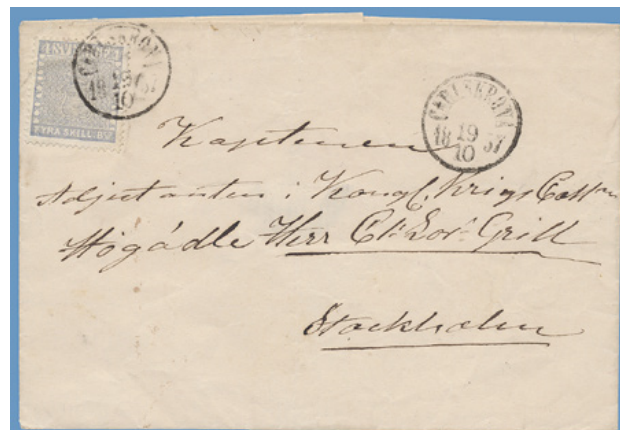 SVERIGE
FYRA SKILL. B
CARLSKRONA
18 19 57
10
CARLSKRONA
18 19 57
10
Kaptenen
Adjutanten i Kongl. Krigs
Högädle Herr Grill
Stockholm